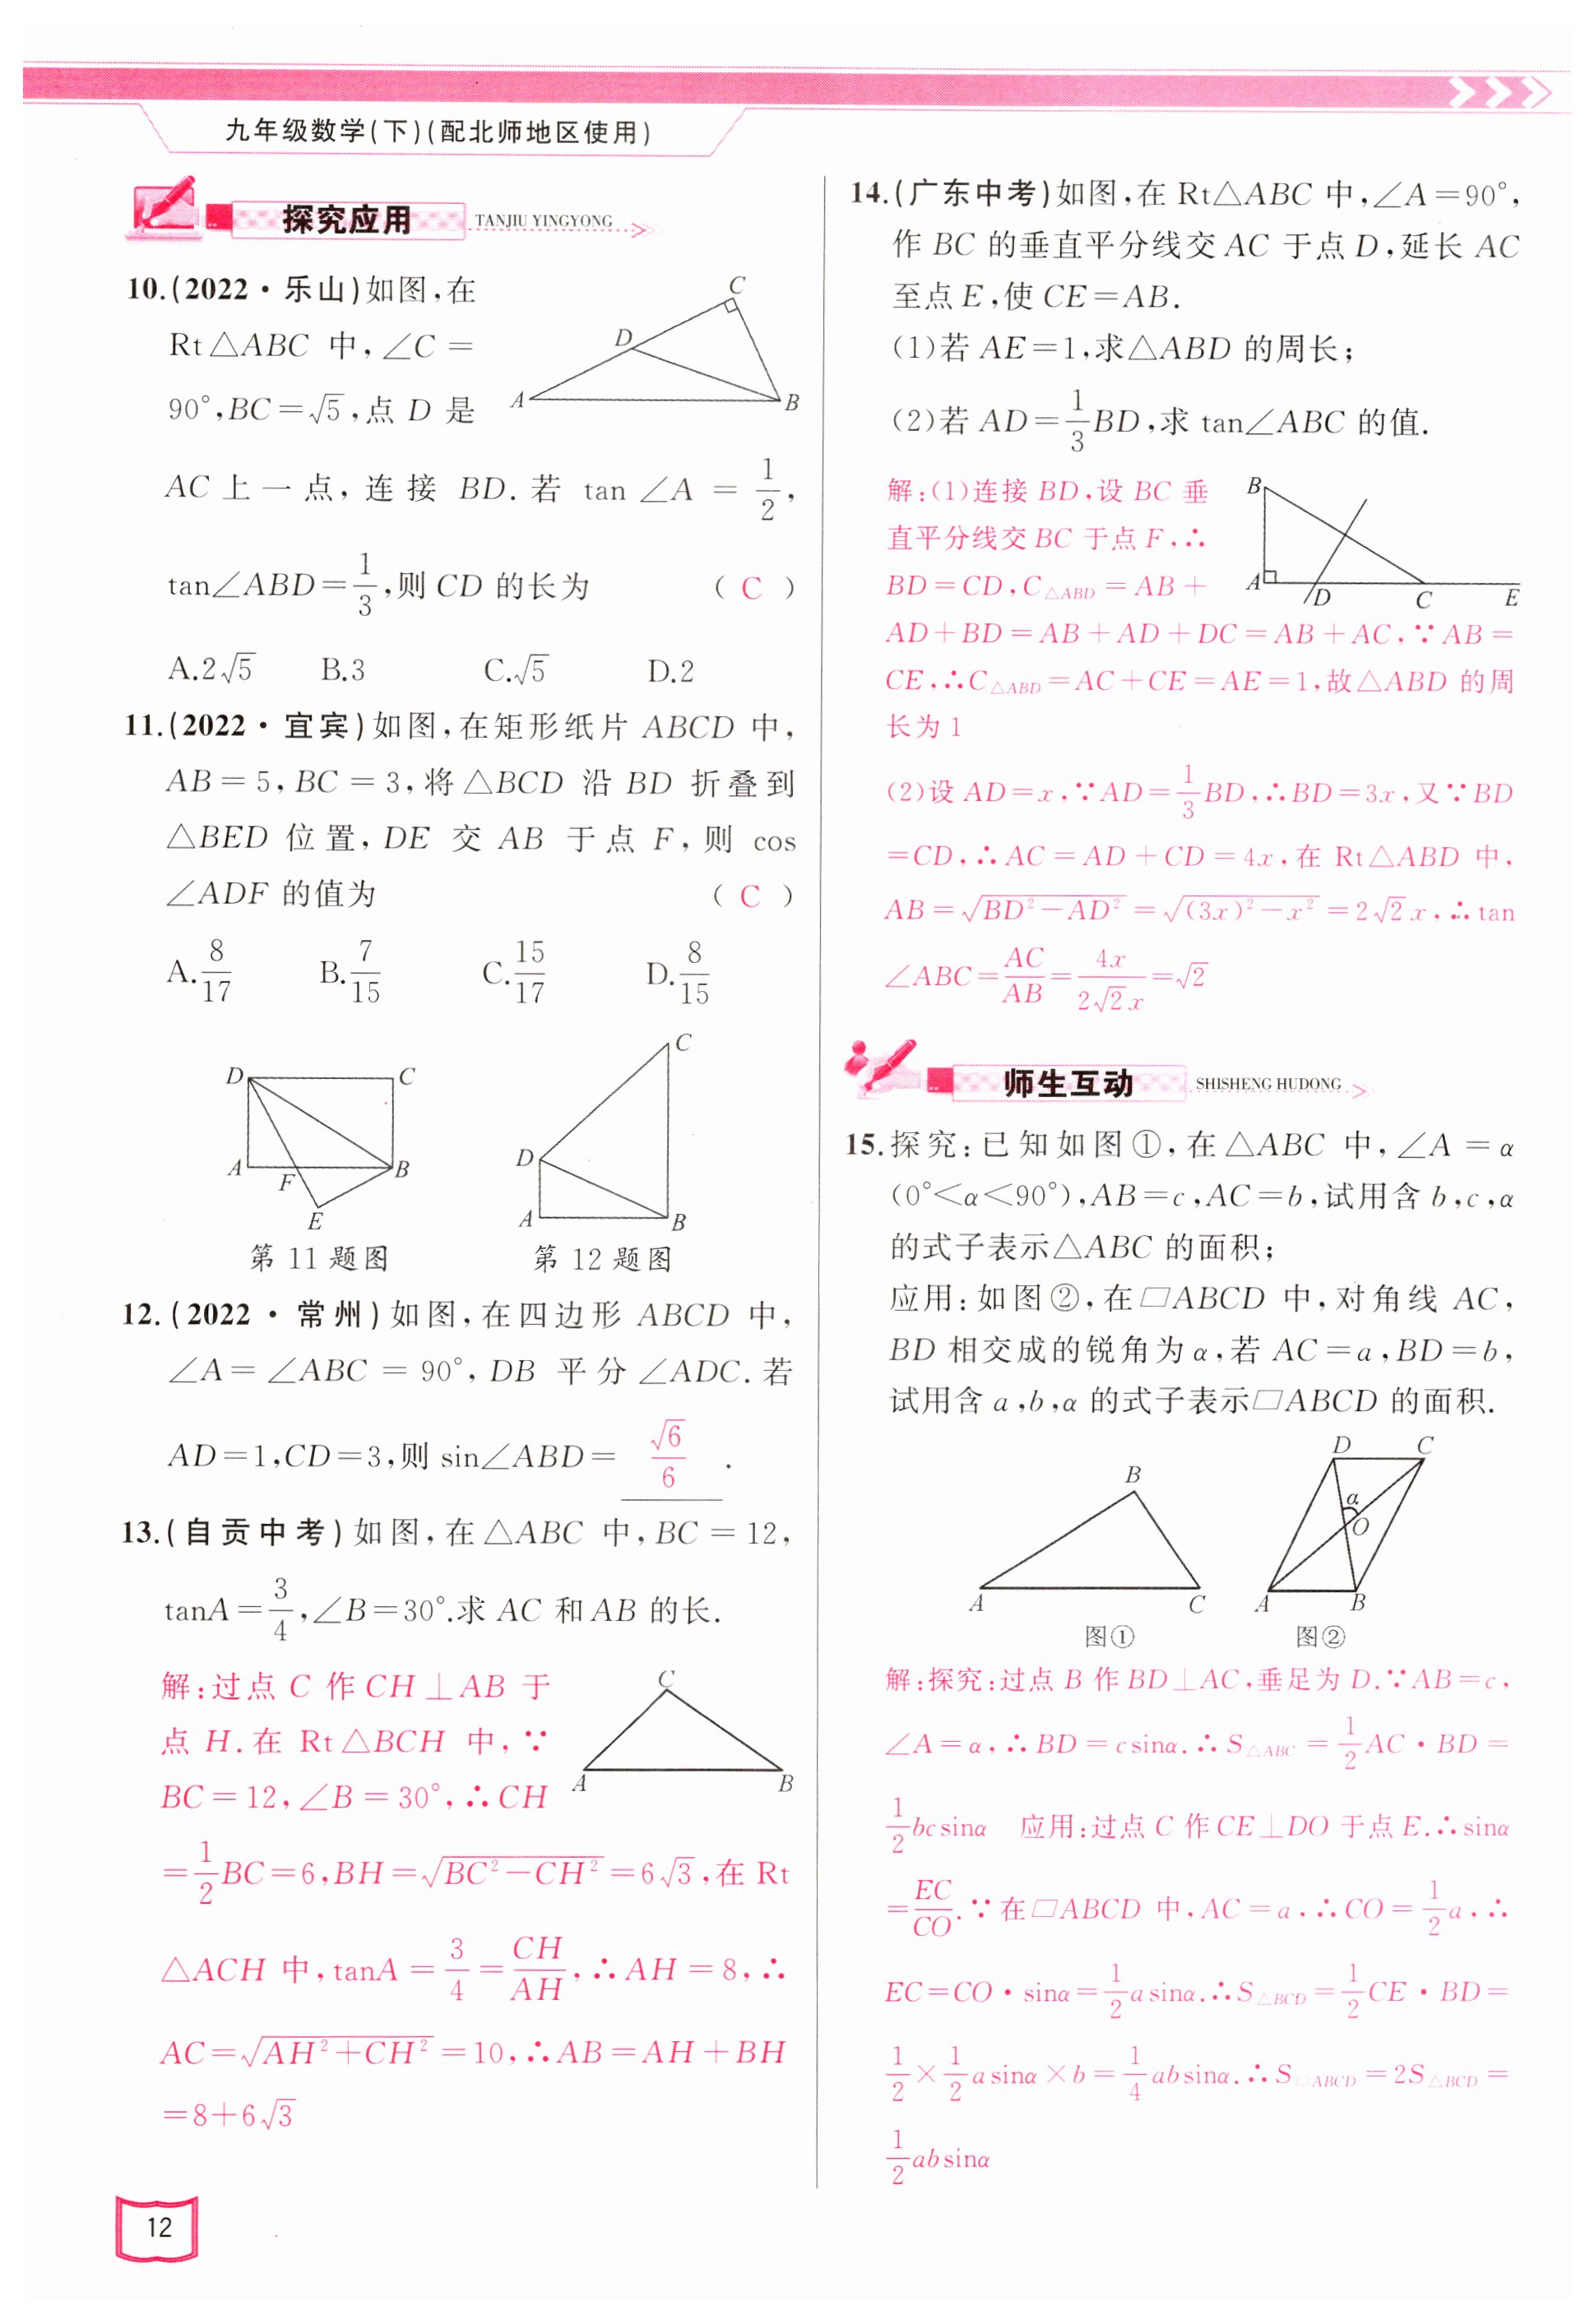 九年级数学(下)(配北师地区使用)
探究应用 TANJIU YINGYONG
10.(2022·乐山)如图,在
Rt△ABC 中,∠C=
90°,BC=√5,点 D 是
AC 上一点,连接 BD.若 tan∠A=1/2,
tan∠ABD=1/3,则 CD 的长为 ( C )
A.2√5 B.3 C.√5 D.2
C
D
A
B
11.(2022·宜宾)如图,在矩形纸片 ABCD 中,
AB=5,BC=3,将△BCD 沿 BD 折叠到
△BED 位置,DE 交 AB 于点 F,则 cos
∠ADF 的值为 ( C )
A.8/17 B.7/15 C.15/17 D.8/15
D C
A F B
E
第 11 题图
C
D
A B
第 12 题图
12.(2022·常州)如图,在四边形 ABCD 中,
∠A=∠ABC=90°,DB 平分∠ADC.若
AD=1,CD=3,则 sin∠ABD= √6/6 .
13.(自贡中考)如图,在△ABC 中,BC=12,
tanA=3/4,∠B=30°.求 AC 和 AB 的长.
解:过点 C 作 CH⊥AB 于
点 H.在 Rt△BCH 中,∵
BC=12,∠B=30°,∴CH
=1/2BC=6,BH=√(BC²-CH²)=6√3,在 Rt
△ACH 中,tanA=3/4=CH/AH,∴AH=8,∴
AC=√(AH²+CH²)=10,∴AB=AH+BH
=8+6√3
C
A B
12
14.(广东中考)如图,在 Rt△ABC 中,∠A=90°,
作 BC 的垂直平分线交 AC 于点 D,延长 AC
至点 E,使 CE=AB.
(1)若 AE=1,求△ABD 的周长;
(2)若 AD=1/3BD,求 tan∠ABC 的值.
解:(1)连接 BD,设 BC 垂
直平分线交 BC 于点 F,∴
BD=CD,C△ABD=AB+
AD+BD=AB+AD+DC=AB+AC,∵AB=
CE,∴C△ABD=AC+CE=AE=1,故△ABD 的周
长为 1
B
A D C E
(2)设 AD=x,∵AD=1/3BD,∴BD=3x,又∵BD
=CD,∴AC=AD+CD=4x,在 Rt△ABD 中,
AB=√(BD²-AD²)=√((3x)²-x²)=2√2x,∴tan
∠ABC=AC/AB=4x/(2√2x)=√2
师生互动 SHISHENG HUDONG
15.探究:已知如图①,在△ABC 中,∠A=α
(0°<α<90°),AB=c,AC=b,试用含 b,c,α
的式子表示△ABC 的面积;
应用:如图②,在▱ABCD 中,对角线 AC,
BD 相交成的锐角为α,若 AC=a,BD=b,
试用含 a,b,α 的式子表示▱ABCD 的面积.
B
A C
图①
D C
α
O
A B
图②
解:探究:过点 B 作 BD⊥AC,垂足为 D.∵AB=c,
∠A=α,∴BD=csinα.∴S△ABC=1/2AC·BD=
1/2bcsinα 应用:过点 C 作 CE⊥DO 于点 E.∴sinα
=EC/CO.∵在▱ABCD 中,AC=a,∴CO=1/2a,∴
EC=CO·sinα=1/2asinα.∴S△BCD=1/2CE·BD=
1/2×1/2asinα×b=1/4absinα.∴S▱ABCD=2S△BCD=
1/2absinα